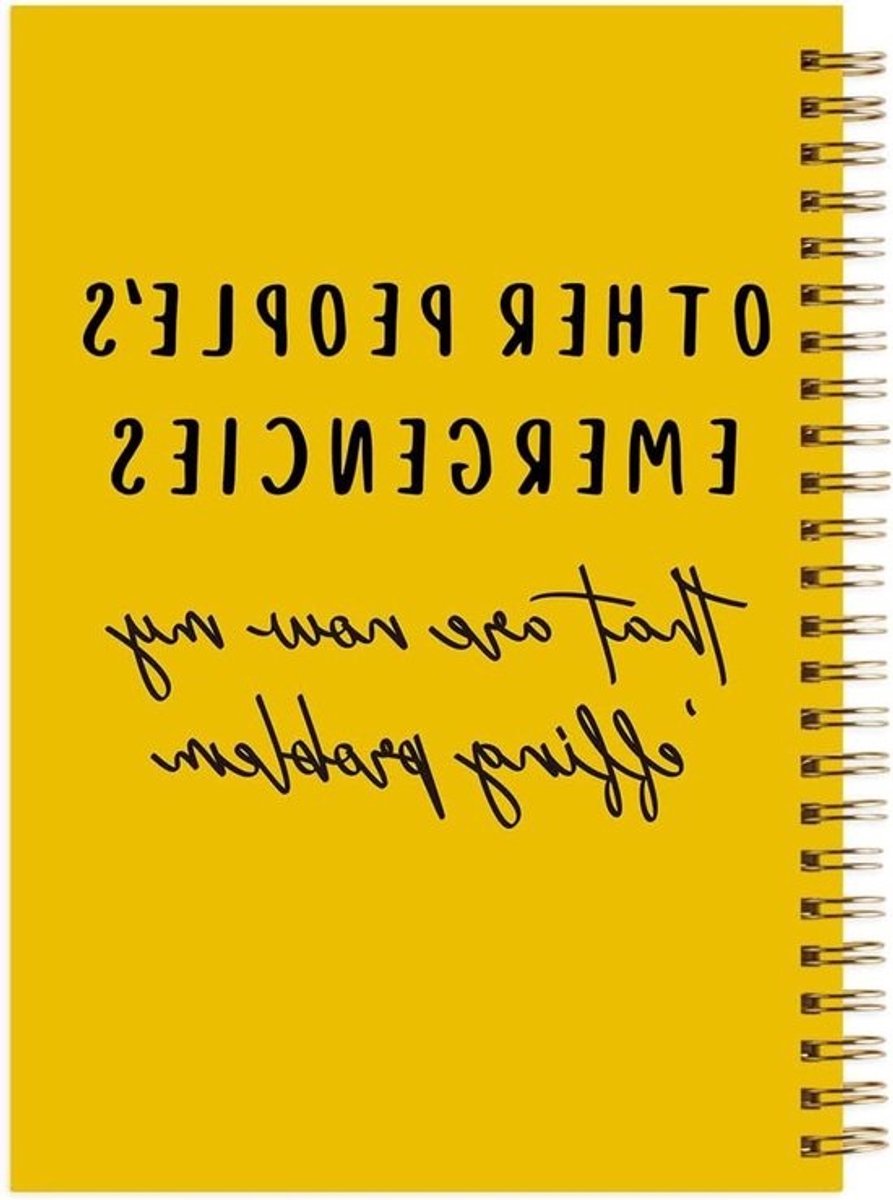 OTHER PEOPLE'S
EMERGENCIES
that are now my
'effing problem